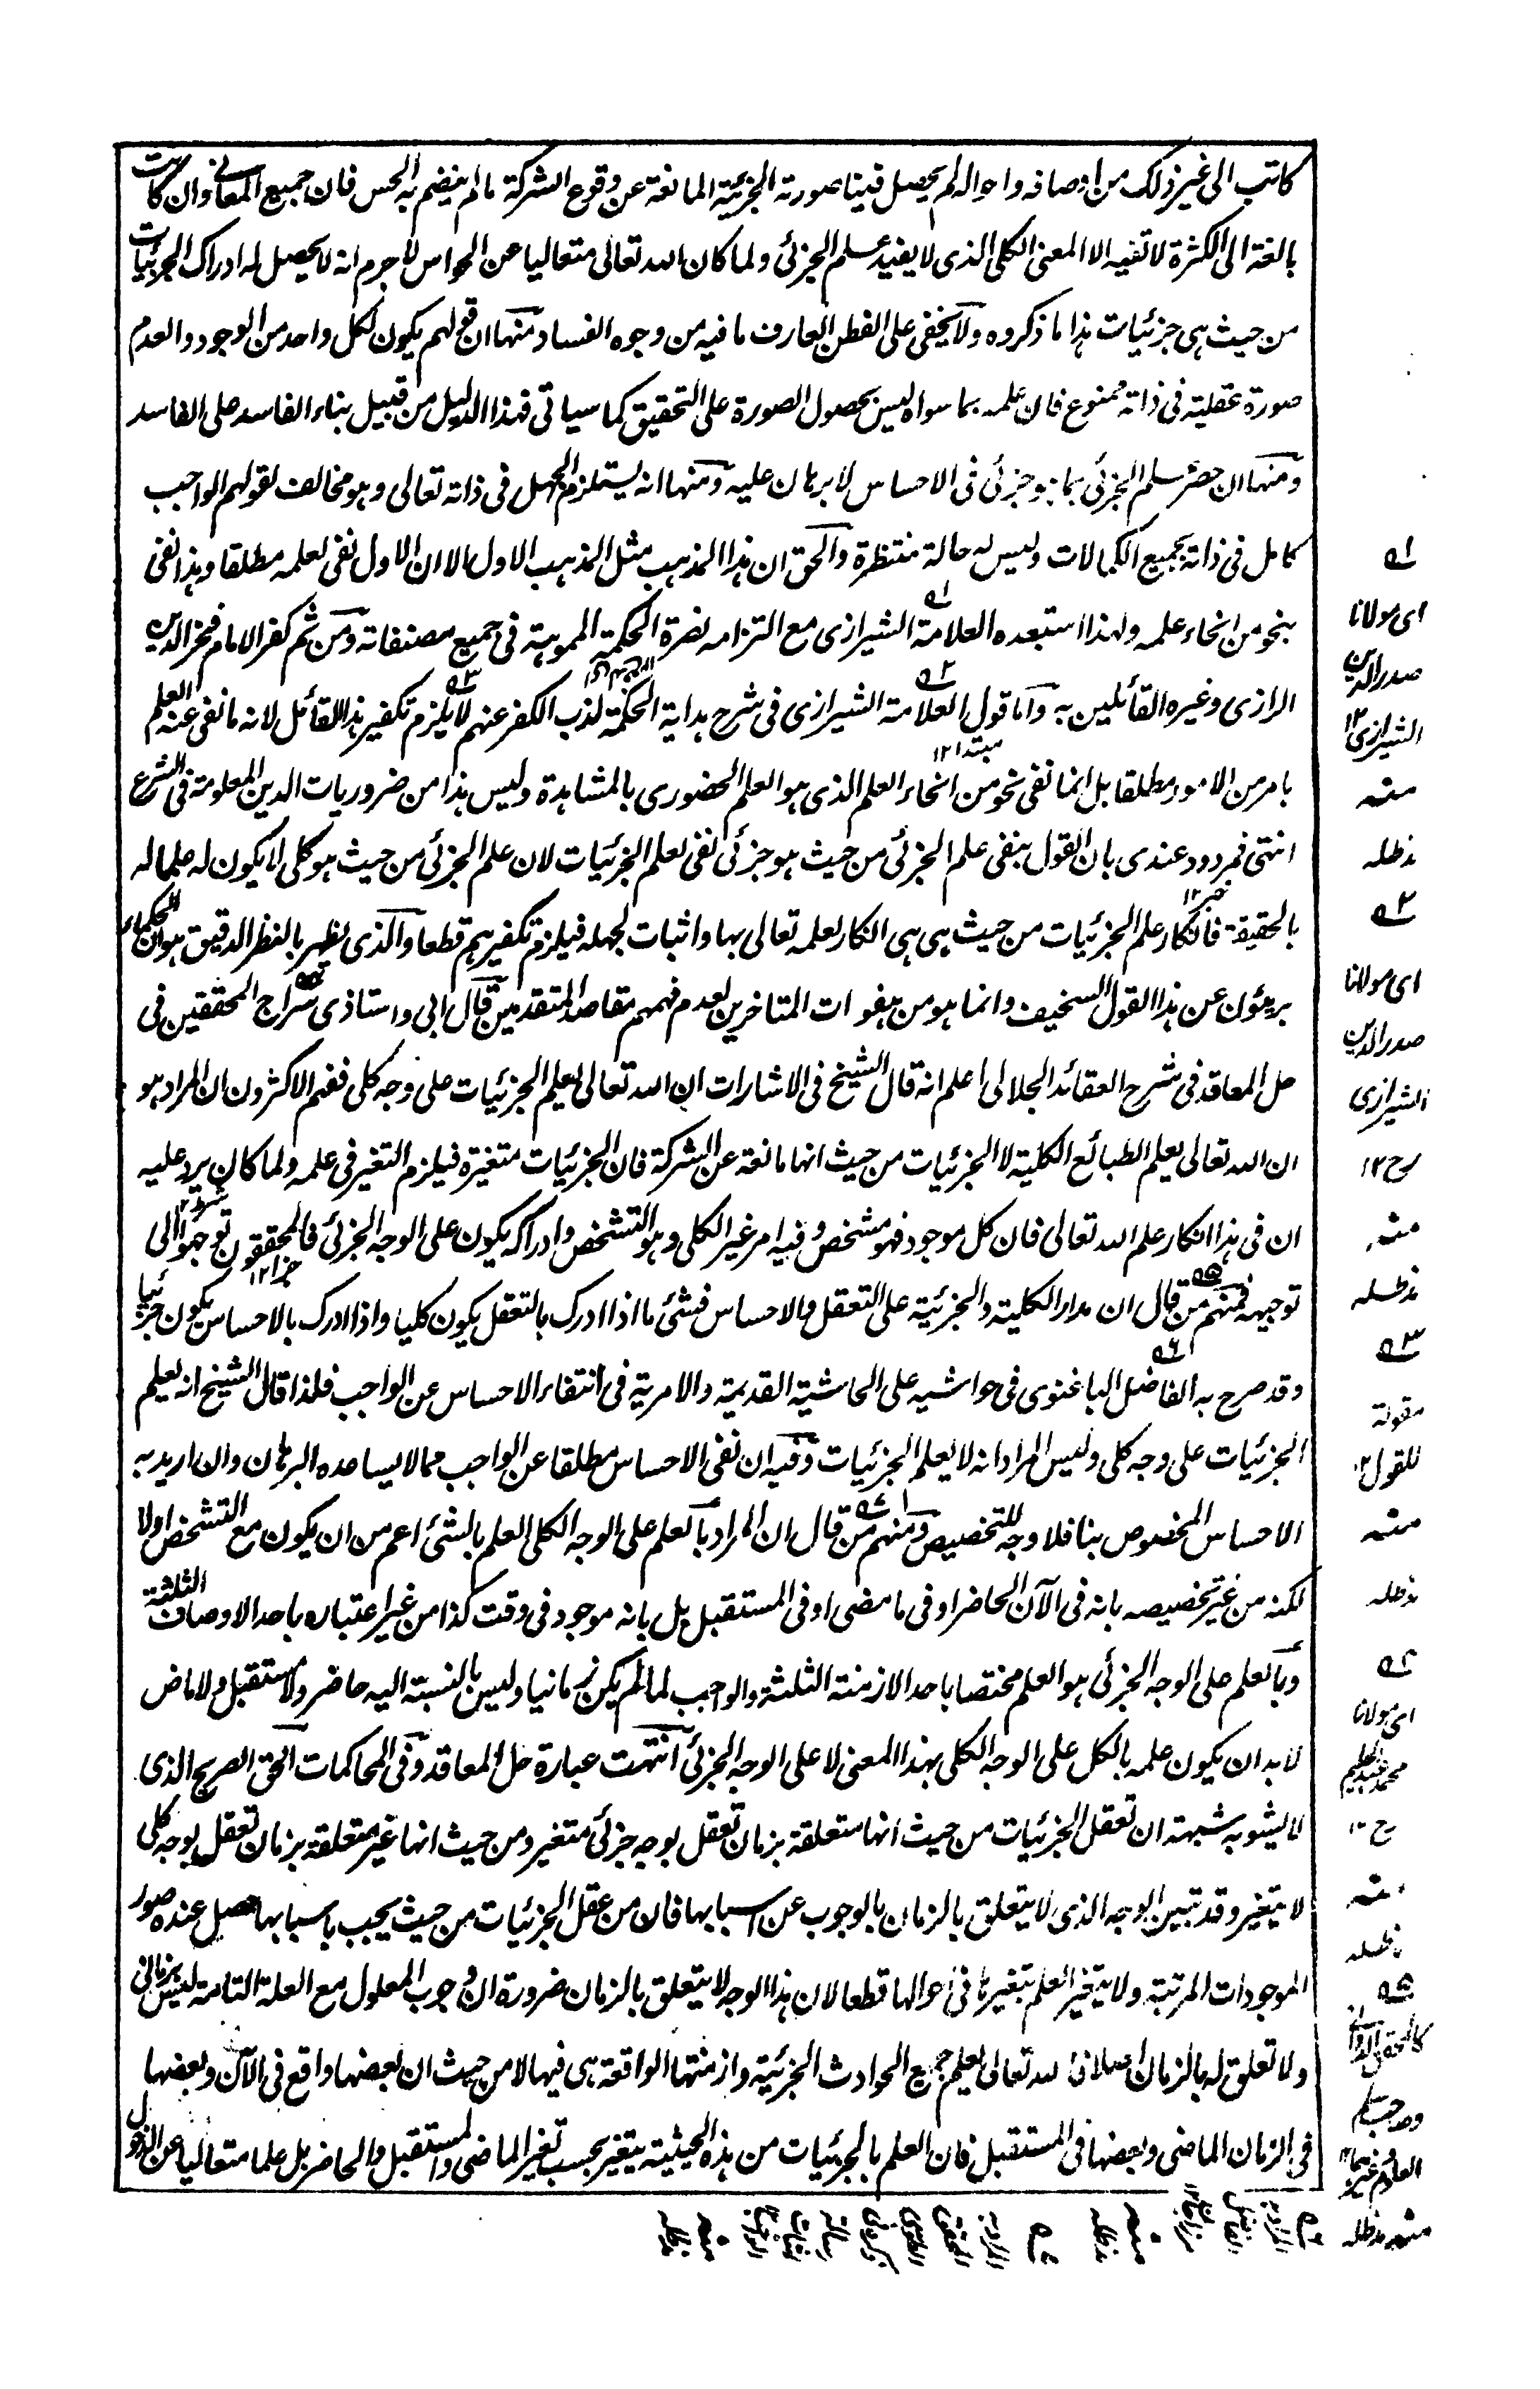 كاتب الى غير ذلك من اوصافه واحواله لم يحصل فينا صورته الجزئية المانعة عن وقوع الشركة مالم ينضم به الحس فان جميع المعانى وان كانت
بالغة الى الكثرة لا تفيد الا المعنى الكلى الذى لا يفيد علم الجزئى ولما كان الله تعالى متعاليا عن الحواس لا جرم انه لا يحصل له ادراك الجزئيات
من حيث هى جزئيات هذا ما ذكروه ولا يخفى على الفطن العارف ما فيه من وجوه الفساد منها ان قولهم يكون لكل واحد من الوجود والعدم
صورة عقلية فى ذاته ممنوع فان علمه بما سواه ليس بحصول الصورة على التحقيق كما سياتى فهذا الدليل من قبيل بناء الفاسد على الفاسد
ومنها ان حصر علم الجزئى بما هو جزئى فى الاحساس لا برهان عليه ومنها انه يستلزم الجهل فى ذاته تعالى وهو مخالف لقولهم الواجب
كامل فى ذاته بجميع الكمالات وليس له حالة منتظرة والحق ان هذا المذهب مثل المذهب الاول الا ان الاول نفى لعلمه مطلقا وهذا نفى
بنحو من انحاء علمه ولهذا استبعده العلامة الشيرازى مع التزامه نصرة الحكمة المموهة فى جميع مصنفاته ومن ثم كفر الامام فخر الدين
الرازى وغيره القائلين به واما قول العلامة الشيرازى فى شرح هداية الحكمة لذب الكفر عنهم لا يلزم تكفير هذا القائل لانه ما نفى عنه العلم
بامر من الامور مطلقا بل انما نفى نحو من انحاء العلم الذى هو العلم الحضورى بالمشاهدة وليس هذا من ضروريات الدين المعلومة فى الشرع
انتهى فمردود عندى بان القول بنفى علم الجزئى من حيث هو جزئى نفى لعلم الجزئيات لان علم الجزئى من حيث هو كلى لا يكون له علما له
بالحقيقة فانكار علم الجزئيات من حيث هى هى انكار لعلمه تعالى بها واثبات لجهله فيلزم تكفيرهم قطعا والذى يظهر بالنظر الدقيق هو ان الحكماء
بريئون عن هذا القول السخيف وانما هو من هفوات المتاخرين لعدم فهمهم مقاصد المتقدمين قال ابى واستاذى سراج المحققين فى
حل المعاقد فى شرح العقائد الجلالى اعلم انه قال الشيخ فى الاشارات ان الله تعالى يعلم الجزئيات على وجه كلى ففهم الاكثرون ان المراد هو
ان الله تعالى يعلم الطبائع الكلية لا الجزئيات من حيث انها مانعة عن الشركة فان الجزئيات متغيرة فيلزم التغير فى علمه ولما كان يرد عليه
ان فى هذا انكار علم الله تعالى فان كل موجود فهو مشخص وفيه امر غير الكلى وهو التشخص وادراكه يكون على الوجه الجزئى فالمحققون توجهوا الى
توجيهه فمنهم من قال ان مدار الكلية والجزئية على التعقل والاحساس فشئ ما اذا ادرك بالتعقل يكون كليا واذا ادرك بالاحساس يكون جزئيا
وقد صرح به الفاضل الباغنوى فى حواشيه على الحاشية القديمة ولا مرية فى انتفاء الاحساس عن الواجب فلذا قال الشيخ انه يعلم
الجزئيات على وجه كلى وليس المراد انه لا يعلم الجزئيات وفيه ان نفى الاحساس مطلقا عن الواجب مما لا يساعده البرهان وان اريد به
الاحساس المخصوص بنا فلا وجه للتخصيص ومنهم من قال ان المراد بالعلم على الوجه الكلى العلم بالشئ اعم من ان يكون مع التشخص اولا
لكنه من غير تخصيصه بانه فى الآن الحاضر او فى ما مضى او فى المستقبل بل بانه موجود فى وقت كذا من غير اعتباره باحد الاوصاف الثلثة
وبالعلم على الوجه الجزئى هو العلم مختصا باحد الازمنة الثلثة والواجب لما لم يكن زمانيا وليس بالنسبة اليه حاضر ولا مستقبل ولا ماض
لا بد ان يكون علمه بالكل على الوجه الكلى بهذا المعنى لا على الوجه الجزئى انتهت عبارة حل المعاقد وفى المحاكمات الحق الصريح الذى
لا يشوبه شبهة ان تعقل الجزئيات من حيث انها متعلقة بزمان تعقل بوجه جزئى متغير ومن حيث انها غير متعلقة بزمان تعقل بوجه كلى
لا يتغير وقد تبين الوجه الذى لا يتعلق بالزمان بالوجوب عن اسبابها فان من عقل الجزئيات من حيث يجب باسبابها حصل عنده صور
الموجودات المرتبة ولا يتغير العلم بتغيرها فى احوالها قطعا لان هذا الوجه لا يتعلق بالزمان ضرورة ان وجوب المعلول مع العلة التامة ليس بزمانى
ولا تعلق له بالزمان اصلا فالله تعالى يعلم جميع الحوادث الجزئية وازمنتها الواقعة هى فيها لا من حيث ان بعضها واقع فى الآن وبعضها
فى الزمان الماضى وبعضها فى المستقبل فان العلم بالجزئيات من هذه الحيثية يتغير بحسب تغير الماضى والمستقبل والحاضر بل علما متعاليا عن الدخول
مبتدا ١٢
خبر ١٢
شرط ١٢
جزا ١٢
١ه
اى مولانا
صدر الدين
الشيرازى ١٢
منه
مدظله
٢ه
اى مولانا
صدر الدين
الشيرازى
رح ١٢
منه
مدظله
٣ه
مقولة
للقول ١٢
منه
مدظله
٤ه
اى مولانا
محمد عبد الحليم
رح ١٢
منه
مدظله
٥ه
كالمحقق الدوانى
وصاحب سلم
العلوم وغيرهما ١٢
منه مدظله